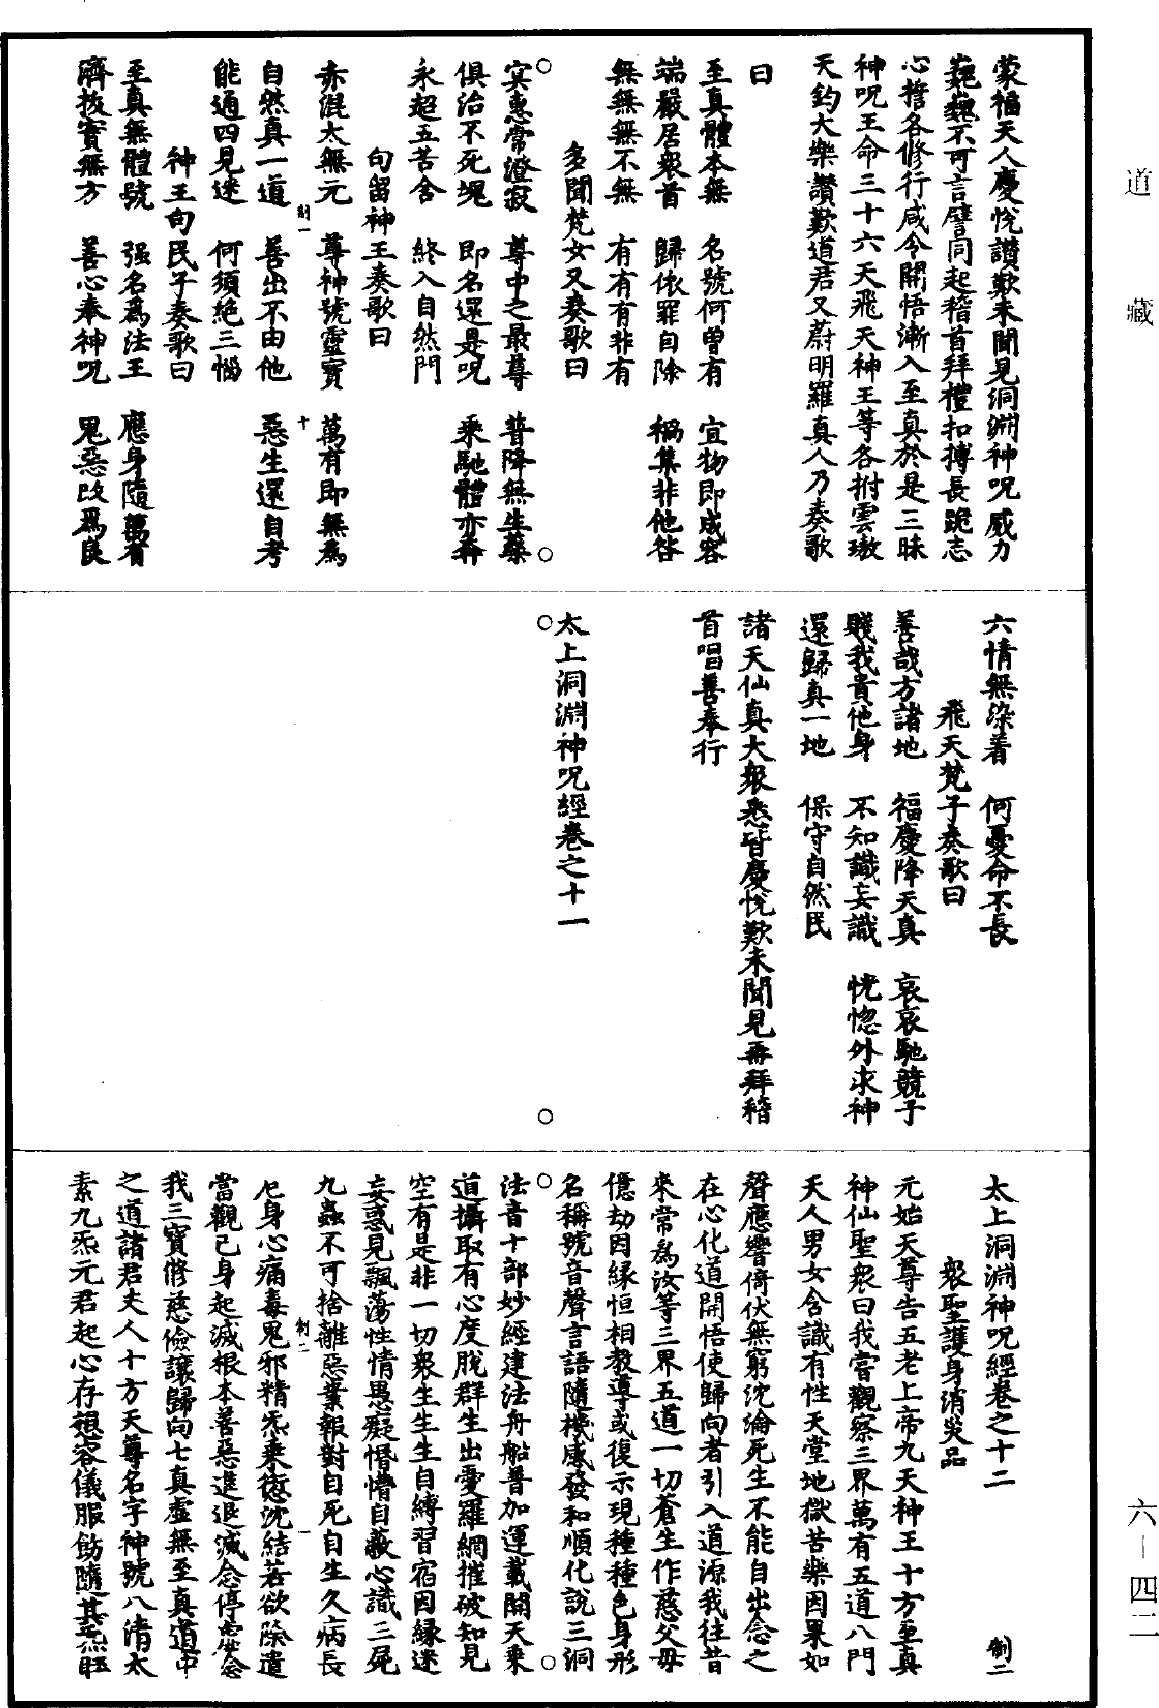 蒙福天人慶悅讚歎未聞見洞淵神呪威力
巍巍不可言譬同起稽首拜禮扣摶長跪志
心擔各修行咸令開悟漸入至真於是三昧
神呪王命三十六天飛天神王等各拊雲璈
天鈞大樂讚歎道君又蔚明羅真人乃奏歌
曰
至真體本無　名號何曾有　宜物即成容
端嚴居衆首　歸依罪自除　禍集非他咎
無無無不無　有有有非有
多聞梵女又奏歌曰
寞惠常澄寂　尊中之最尊　普降無生藥
俱治不死塊　即名還是呪　乘馳體亦奔
永超五苦舍　終入自然門
句留神王奏歌曰
赤混太無元　尊神號靈寶　萬有即無為
制一　十
自然真一道　善出不由他　惡生還自考
能通四見迷　何須絕三惱
神王句民子奏歌曰
至真無體號　强名為法王　應身隨萬有
濟拔實無方　善心奉神呪　鬼惡改為良
六情無染着　何憂命不長
飛天梵子奏歌曰
善哉方諸地　福慶降天真　哀哀馳競子
賤我貴他身　不知識妄識　恍惚外求神
還歸真一地　保守自然民
諸天仙真大衆悉皆慶悅歎未聞見再拜稽
首唱善奉行
太上洞淵神呪經卷之十一
太上洞淵神呪經卷之十二　制二
衆聖護身消災品
元始天尊告五老上帝九天神王十方至真
神仙聖衆曰我嘗觀察三界萬有五道八門
天人男女含識有性天堂地獄苦樂因果如
聲應響倚伏無窮沈淪死生不能自出念之
在心化道開悟使歸向者引入道源我往昔
來常為汝等三界五道一切蒼生作慈父母
億劫因緣恒相教導或復示現種種色身形
名稱號音聲言語隨機感發和順化說三洞
法音十部妙經建法舟船普加運載開天乘
道攝取有心度脫群生出憂羅網摧破知見
空有是非一切衆生生生自縛習宿因緣迷
妄惑見飄蕩性情愚癡惛懵自蔽心識三尸
九蟲不可捨離惡業報對自死自生久病長
制二　一
尼身心痛毒鬼邪精炁乘愆沈結若欲除遣
當觀己身起滅根本善惡進退滅念停當念
我三寶修慈儉讓歸向七真虛無至真道中
之道諸君丈人十方天尊名字神號八清太
素九炁元君起心存想容儀服飾隨其炁旺
道
藏
六－四二